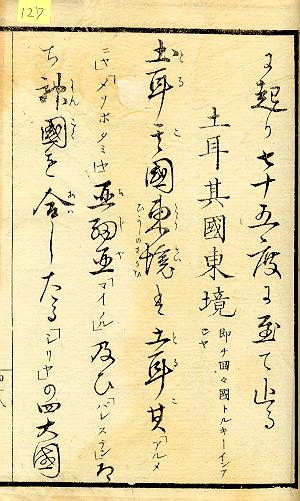 127
に起り七十五度に至て止る
土耳其國東境
即チ
トルキーインアシヤ
土耳其國東境は土耳其「アルメ
ニヤ」「メソポタミヤ」亜細亜「マイノル」及ひ「パレステン」
神國を合したる「シリヤ」の四大國